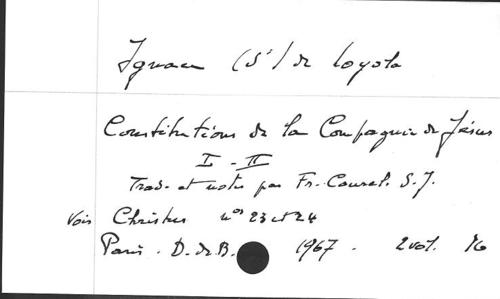 Ignace (St) de Loyola
Constitutions de la Compagnie de Jésus
I - II
Trad. et notes par Fr. Courel. S.J.
Voir Christus nos 23 et 24
Paris. D.d.B. 1967. 2 vol. 16